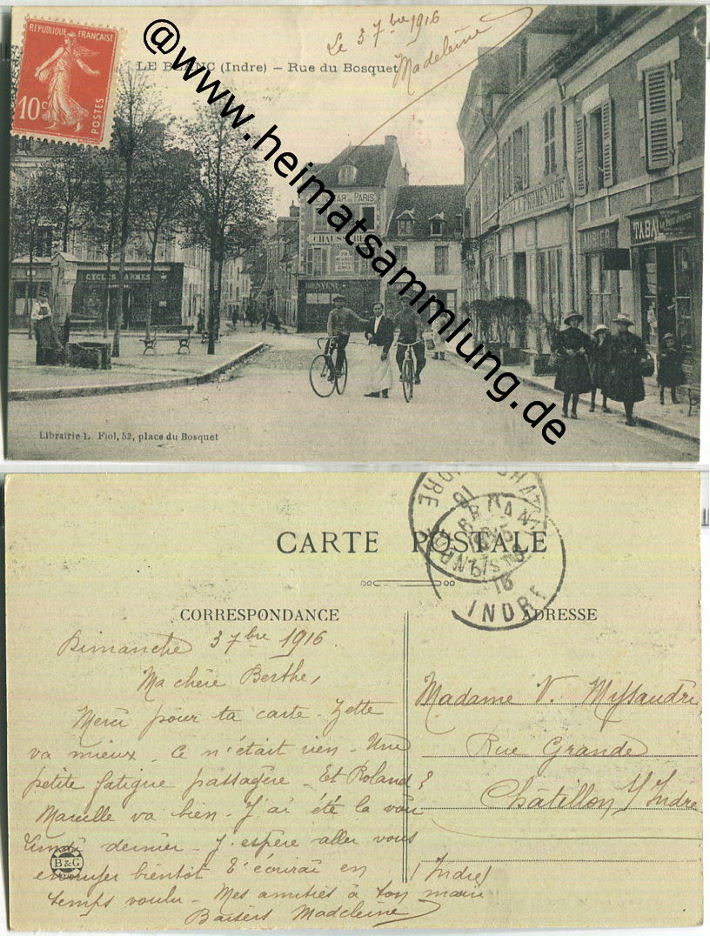 RÉPUBLIQUE FRANÇAISE
10c
POSTES
Le 3 7bre 1916
Madeleine
LE BLANC (Indre) – Rue du Bosquet
@www.heimatsammlung.de
BAR DE PARIS
CHAUSSURES
CYCLES ARMES
TABAC
Librairie L. Fiol, 52, place du Bosquet
CARTE POSTALE
INDRE
CORRESPONDANCE
ADRESSE
Dimanche 3 7bre 1916
Ma chère Berthe,
Merci pour ta carte - Zette
va mieux. Ce n'était rien - Une
petite fatigue passagère - Et Roland ?
Marcelle va bien - J'ai été la voir
dernier - J'espère aller vous
bientôt T'écrirai en
temps voulu - Mes amitiés à ton mari
Baisers Madeleine
B&G
Madame V.
Rue Grande
Châtillon s/ Indre
(Indre)